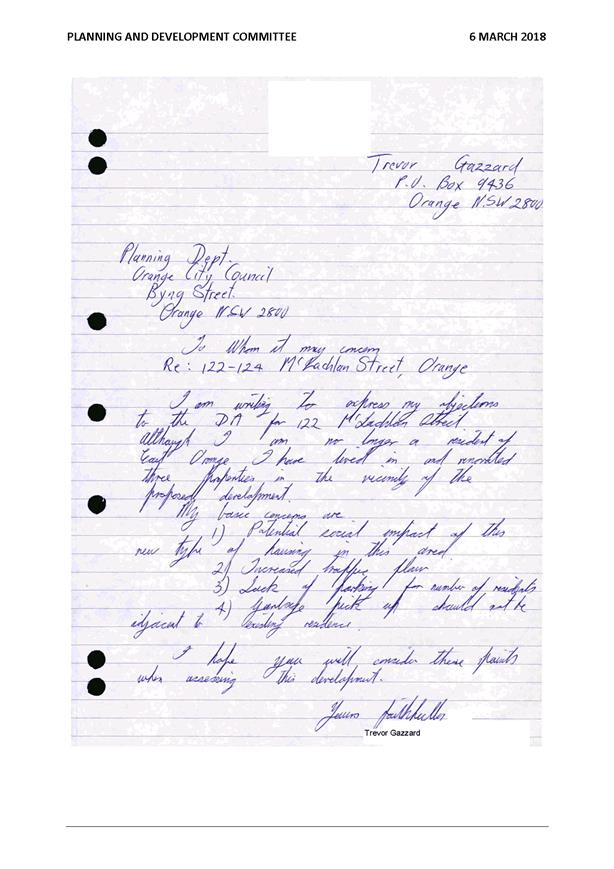 PLANNING AND DEVELOPMENT COMMITTEE 6 MARCH 2018
Trevor Gazzard
P.O. Box 9436
Orange N.S.W 2800
Planning Dept.
Orange City Council
Byng Street.
Orange N.S.W 2800
To Whom it may concern
Re: 122-124 McLachlan Street, Orange
I am writing to express my objections
to the DA for 122 McLachlan Street
Although I am no longer a resident of
East Orange I have lived in and renovated
three properties in the vicinity of the
proposed development.
My basic concerns are
1) Potential social impact of this
new type of housing in this area
2) Increased traffic flow
3) Lack of parking for number of residents
4) Garbage pick up should not be
adjacent to existing residence.
I hope you will consider these points
when assessing this development.
Yours faithfully
Trevor Gazzard